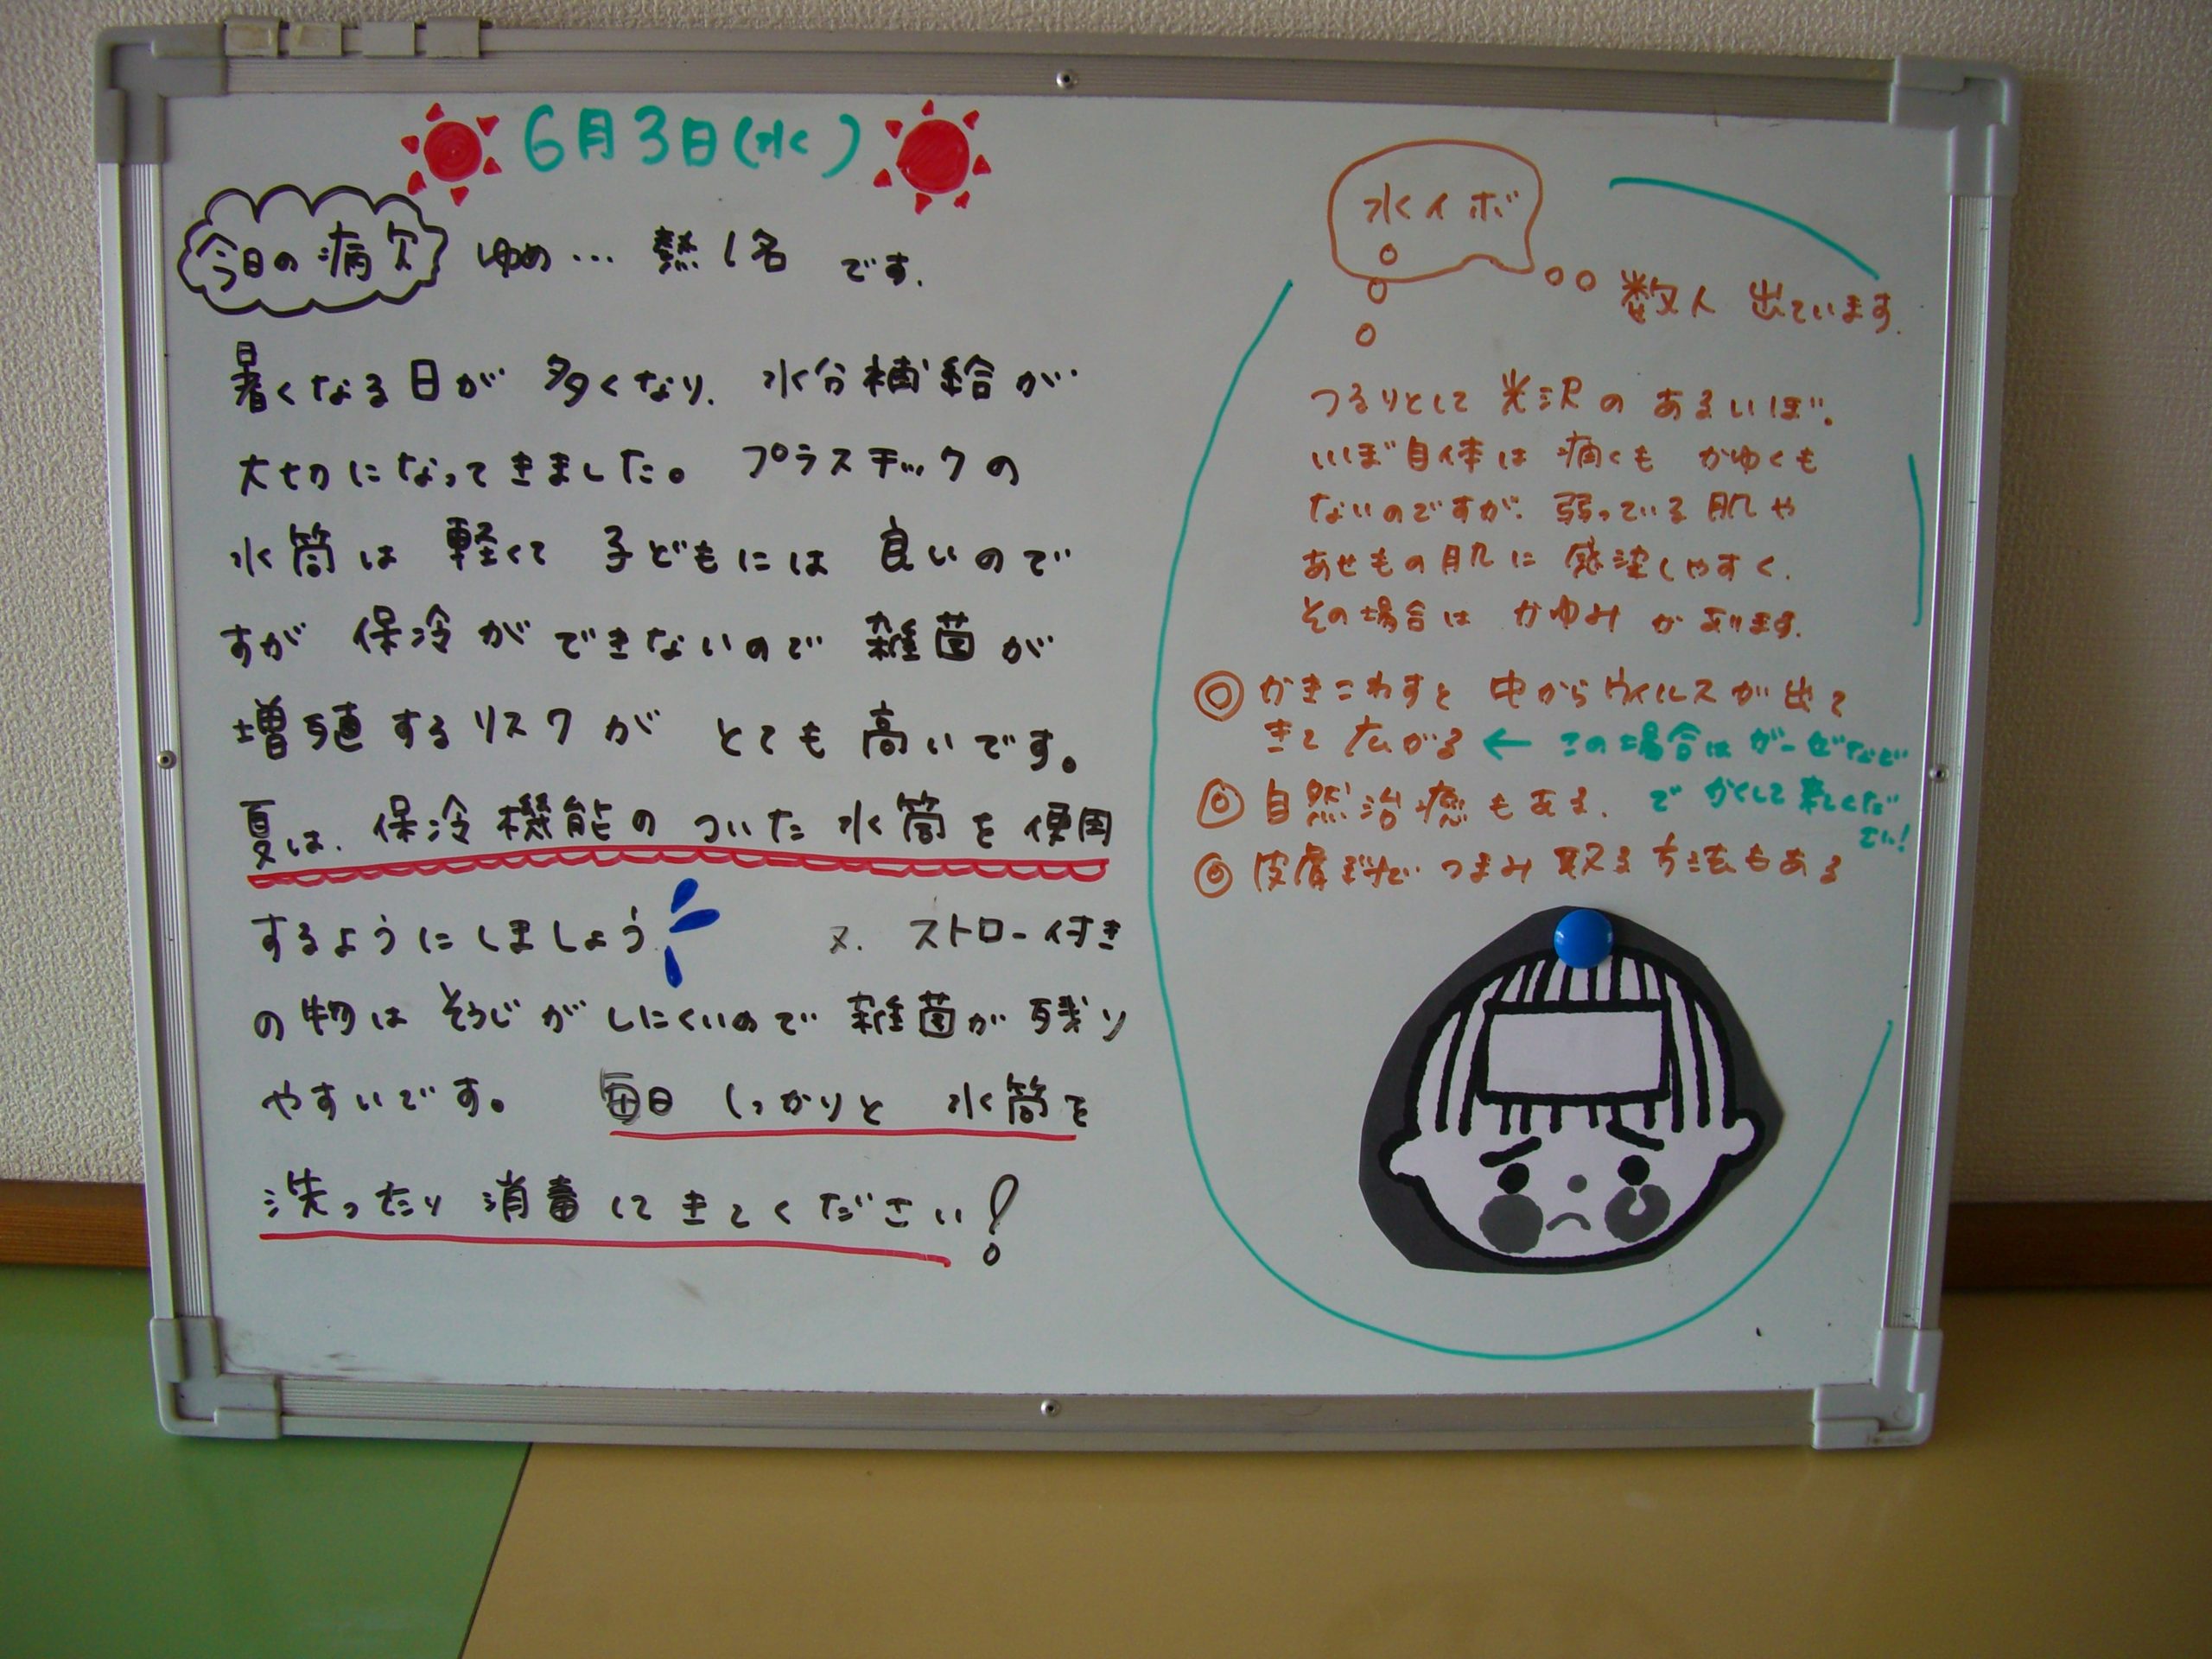 6月3日(水)
今日の病欠 ゆめ… 熱1名 です.
暑くなる日が 多くなり、水分補給が
大切になってきました。プラスチックの
水筒は 軽くて 子どもには 良いので
すが 保冷ができないので 雑菌が
増殖するリスクが とても高いです。
夏は、保冷機能の ついた 水筒を使用
するようにしましょう 又、ストロー付き
の物は そうじが しにくいので 雑菌が残り
やすいです。 毎日 しっかりと 水筒を
洗ったり 消毒してきてください!
水イボ
数人 出ています.
つるりとして 光沢の あるいぼ。
いぼ自体は 痛くも かゆくも
ないのですが、弱っている肌や
あせもの肌に 感染しやすく、
その場合は かゆみ があります.
◎ かきこわすと 中からウイルスが出て
きて 広がる ← この場合は ガーゼなど
でかくして来てくだ
さい!
◎ 自然治癒もある.
◎ 皮膚科でつまみ取る方法もある